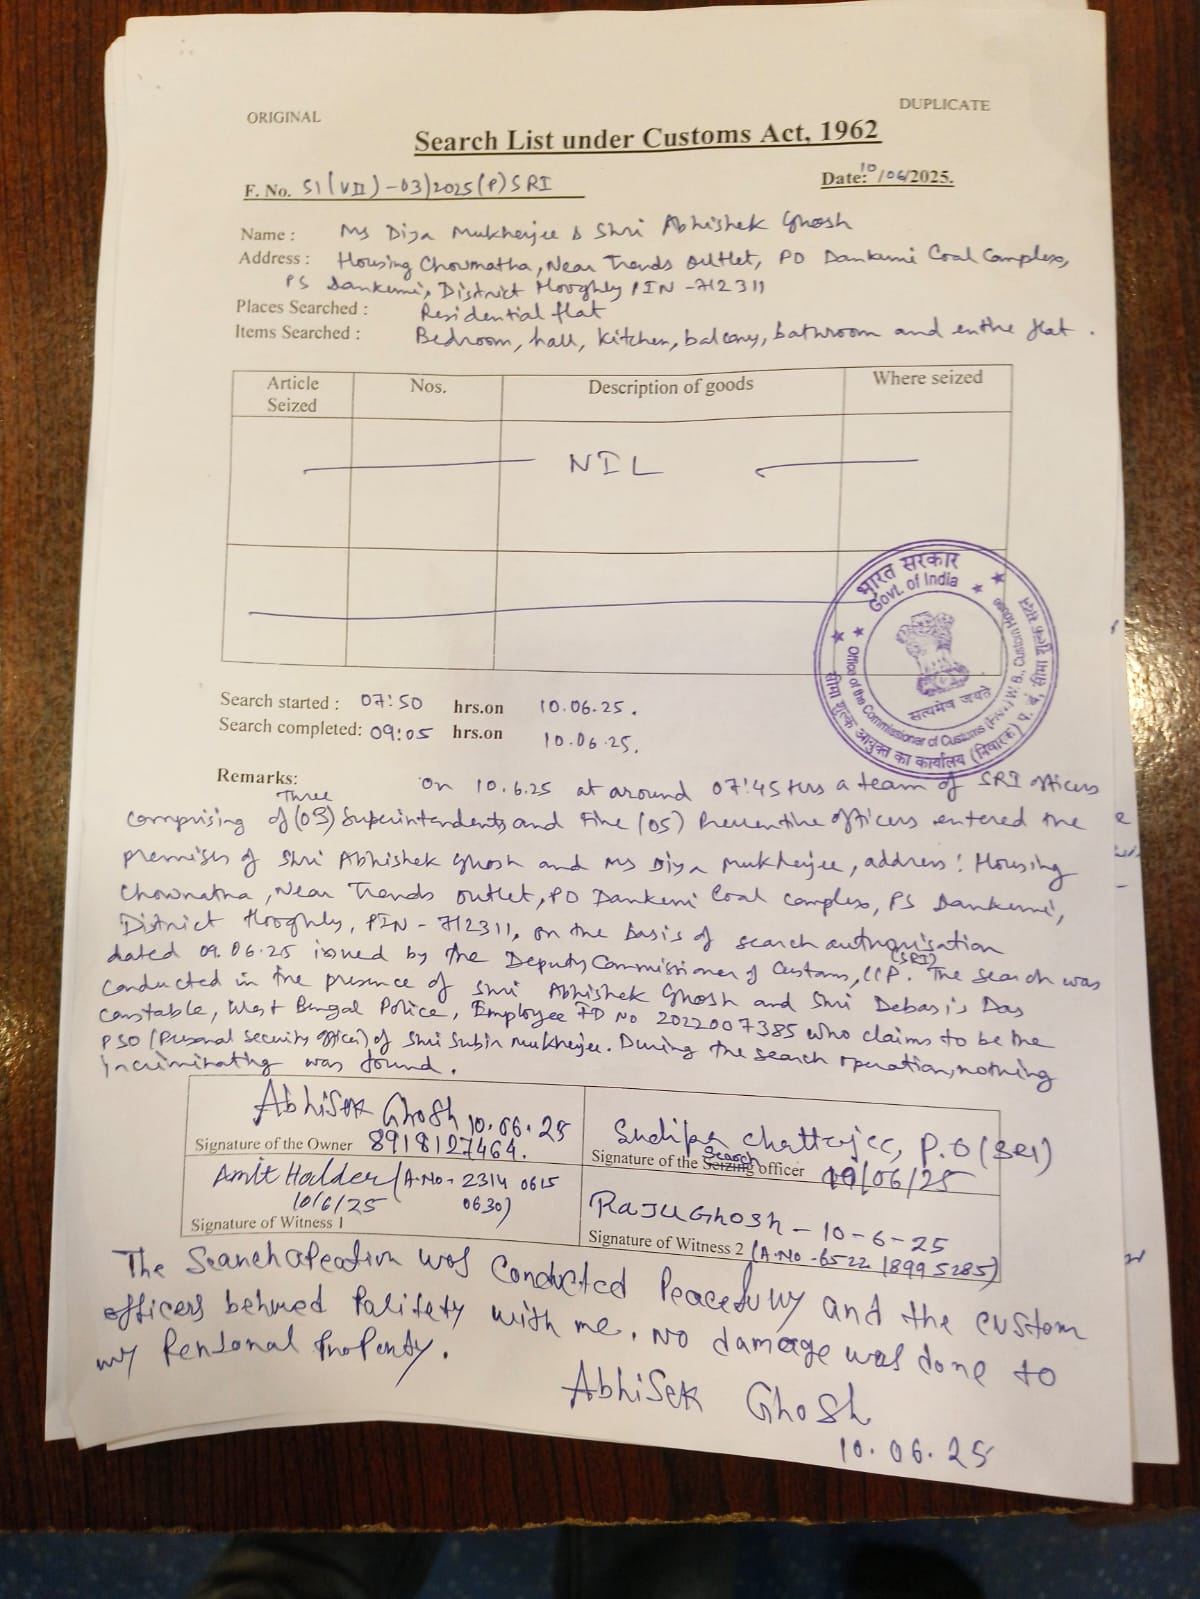 ORIGINAL
DUPLICATE
Search List under Customs Act, 1962
F. No. S1(VII)-03/2025(P)SRI
Date: 10/06/2025.
Name : Ms Diya Mukherjee & Shri Abhishek Ghosh
Address : Housing Chowmatha, Near Trends Outlet, PO Dankuni Coal Complex,
PS Dankuni, District Hooghly PIN - 712311
Places Searched : Residential flat
Items Searched : Bedroom, hall, kitchen, balcony, bathroom and entire flat.
Article Seized
Nos.
Description of goods
Where seized
NIL
भारत सरकार
Govt. of India
सत्यमेव जयते
Office of the Commissioner of Customs (Prev.) W. B., Custom House
सीमा शुल्क आयुक्त का कार्यालय (निवारक) प. बं, सीमा शुल्क सदन
Search started : 07:50 hrs.on 10.06.25.
Search completed: 09:05 hrs.on 10.06.25.
Remarks: On 10.6.25 at around 07:45 Hrs a team of SRI officers
comprising of Three (03) Superintendents and Five (05) Preventive officers entered the
premises of Shri Abhishek Ghosh and Ms Diya Mukherjee, address: Housing
Chowmatha, Near Trends outlet, PO Dankuni Coal complex, PS Dankuni,
District Hooghly, PIN - 712311, on the basis of search authorisation
dated 09.06.25 issued by the Deputy Commissioner of Customs, (SRI) CCP. The search was
conducted in the presence of Shri Abhishek Ghosh and Shri Debasis Das
constable, West Bengal Police, Employee ID No 2022007385 who claims to be the
PSO (Personal security officer) of Shri Subir Mukherjee. During the search operation, nothing
incriminating was found.
Abhisek Ghosh 10.06.25
Signature of the Owner 8918127464.
Sudipa Chatterjee, P.O (SRI)
Signature of the Seizing Search officer 10/06/25
Amit Halder (A.No - 2314 0615
10/6/25 0630)
Signature of Witness 1
Raju Ghosh - 10-6-25
Signature of Witness 2 (A.No - 6522 1899 5285)
The Search opeation was conducted Peacefully and the custom
officers behived Politety with me. No damage was done to
my Personal Property.
Abhisek Ghosh
10.06.25